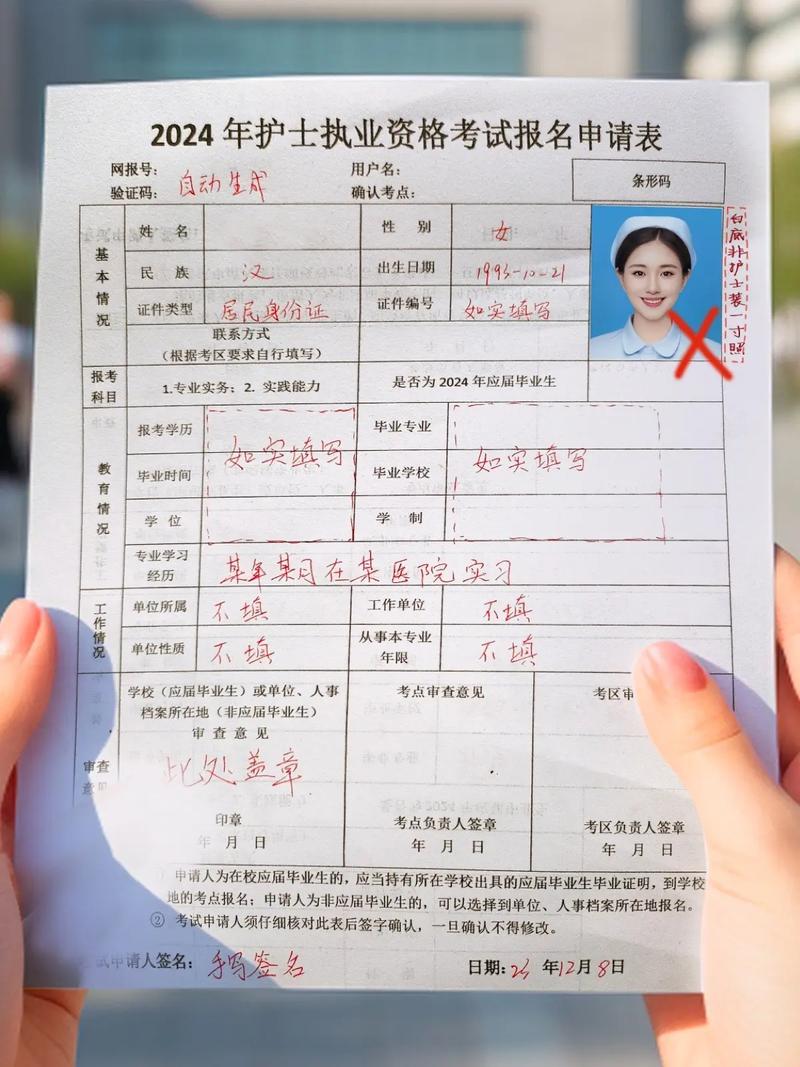 2024年护士执业资格考试报名申请表
网报号:
用户名:
条形码
验证码:
自动生成
确认考点:
基本情况
姓 名
性 别
女
白底非护士装一寸照
民 族
汉
出生日期
1993-10-21
证件类型
居民身份证
证件编号
如实填写
联系方式
(根据考区要求自行填写)
报考科目
1.专业实务; 2. 实践能力
是否为2024年应届毕业生
教育情况
报考学历
如实填写
毕业专业
如实填写
毕业时间
毕业学校
学 位
学 制
专业学习
经历
某年某月在某医院实习
工作情况
单位所属
不填
工作单位
不填
单位性质
不填
从事本专业
年限
不填
审查意见
学校(应届毕业生)或单位、人事
档案所在地(非应届毕业生)
审 查 意 见
此处盖章
印章
年 月 日
考点审查意见
考点负责人签章
年 月 日
考区审
考区负责人签章
年 月 日
申请人为在校应届毕业生的,应当持有所在学校出具的应届毕业生毕业证明,到学校
地的考点报名;申请人为非应届毕业生的,可以选择到单位、人事档案所在地报名。
② 考试申请人须仔细核对此表后签字确认,一旦确认不得修改。
试申请人签名:
手写签名
日期:23 年12月8日